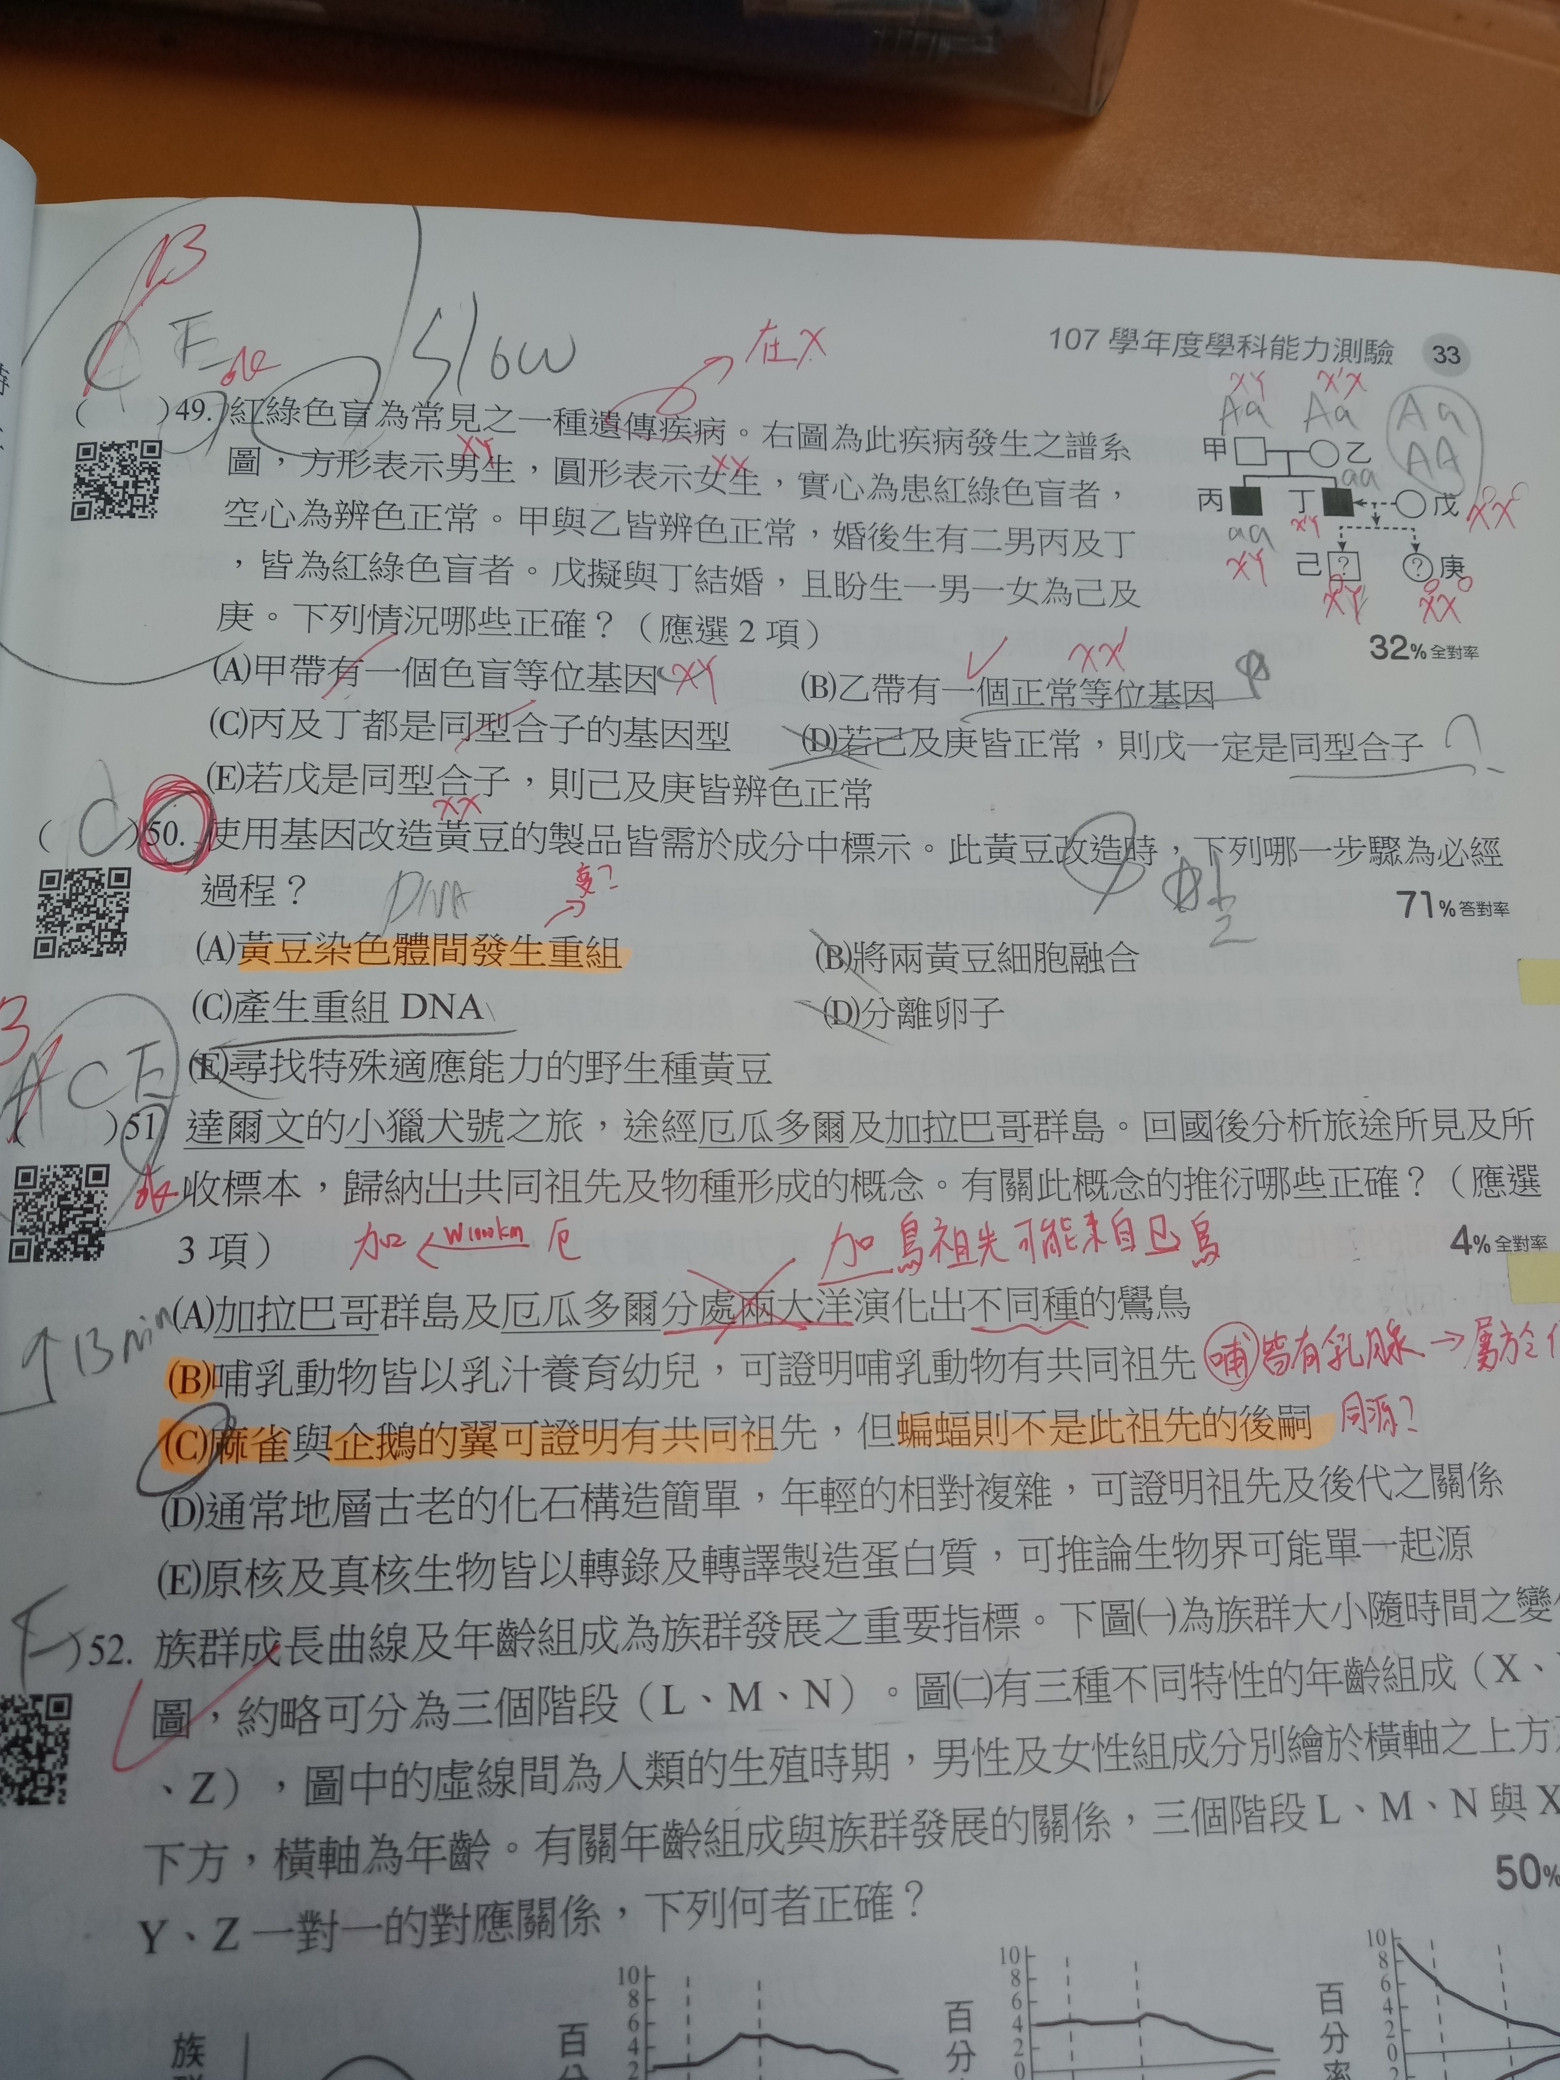 B
C E Slow
在X
107 學年度學科能力測驗 33
XY X'X
Aa Aa Aa
( )49. 紅綠色盲為常見之一種遺傳疾病。右圖為此疾病發生之譜系
甲 乙 AA
XY XX aa
圖，方形表示男生，圓形表示女生，實心為患紅綠色盲者，
丙 丁 戊
空心為辨色正常。甲與乙皆辨色正常，婚後生有二男丙及丁
aa X'Y
XY 己 ? ? 庚
，皆為紅綠色盲者。戊擬與丁結婚，且盼生一男一女為己及
庚。下列情況哪些正確？（應選 2 項）
32% 全對率
(A)甲帶有一個色盲等位基因 XY
XX'
(B)乙帶有一個正常等位基因
(C)丙及丁都是同型合子的基因型
(D)若己及庚皆正常，則戊一定是同型合子 ?
(E)若戊是同型合子，則己及庚皆辨色正常
XX
( C )50. 使用基因改造黃豆的製品皆需於成分中標示。此黃豆改造時，下列哪一步驟為必經
過程？ DNA
71% 答對率
(A)黃豆染色體間發生重組
(B)將兩黃豆細胞融合
(C)產生重組 DNA
(D)分離卵子
(E)尋找特殊適應能力的野生種黃豆
B
A C E
( )51. 達爾文的小獵犬號之旅，途經厄瓜多爾及加拉巴哥群島。回國後分析旅途所見及所
收標本，歸納出共同祖先及物種形成的概念。有關此概念的推衍哪些正確？（應選
3 項）
加 W1000km 厄
加 島祖先可能來自巴島
4% 全對率
(A)加拉巴哥群島及厄瓜多爾分處兩大洋演化出不同種的鷽鳥
13 min
(B)哺乳動物皆以乳汁養育幼兒，可證明哺乳動物有共同祖先
哺 皆有乳腺 → 屬於
(C)麻雀與企鵝的翼可證明有共同祖先，但蝙蝠則不是此祖先的後嗣
同源?
(D)通常地層古老的化石構造簡單，年輕的相對複雜，可證明祖先及後代之關係
(E)原核及真核生物皆以轉錄及轉譯製造蛋白質，可推論生物界可能單一起源
)52. 族群成長曲線及年齡組成為族群發展之重要指標。下圖㈠為族群大小隨時間之變
圖，約略可分為三個階段（L、M、N）。圖㈡有三種不同特性的年齡組成（X、
、Z），圖中的虛線間為人類的生殖時期，男性及女性組成分別繪於橫軸之上方
下方，橫軸為年齡。有關年齡組成與族群發展的關係，三個階段 L、M、N 與 X
Y、Z 一對一的對應關係，下列何者正確？
50%
10 8 6 4 2
10 8 6 4 2 0
10 8 6 4 2 0 2
族
百
百分
百分率